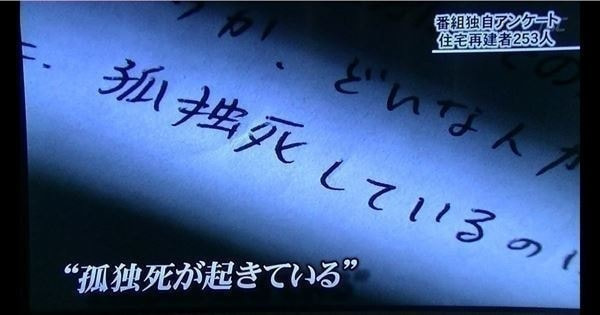 番組独自アンケート
住宅再建者253人
か、どんなんか
孤独死しているの
“孤独死が起きている”